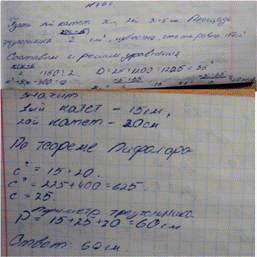 Пусть 1й катет x, 2й x+5 см. Площадь
треугольника 2 см², известно, что она равна 150
Составим и решим уравнение
=150|·2 D=25+1200=1225=35²
значит
1ый катет - 15см,
2ой катет - 20см
По теореме Пифагора
c²=15+20.
c²=225+400=625.
c=25.
Периметр треугольника
P=15+25+20=60см
Ответ: 60см